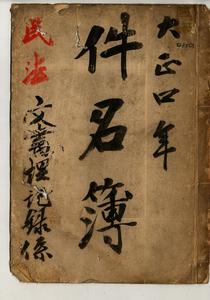 大正口年
件名簿
民法
文書整理記録係